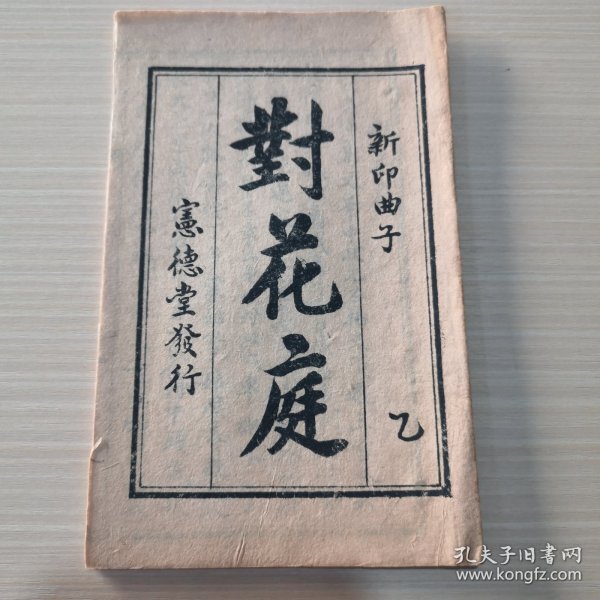 新印曲子
乙
對花庭
憲德堂發行
孔夫子旧书网
www.kongfz.com